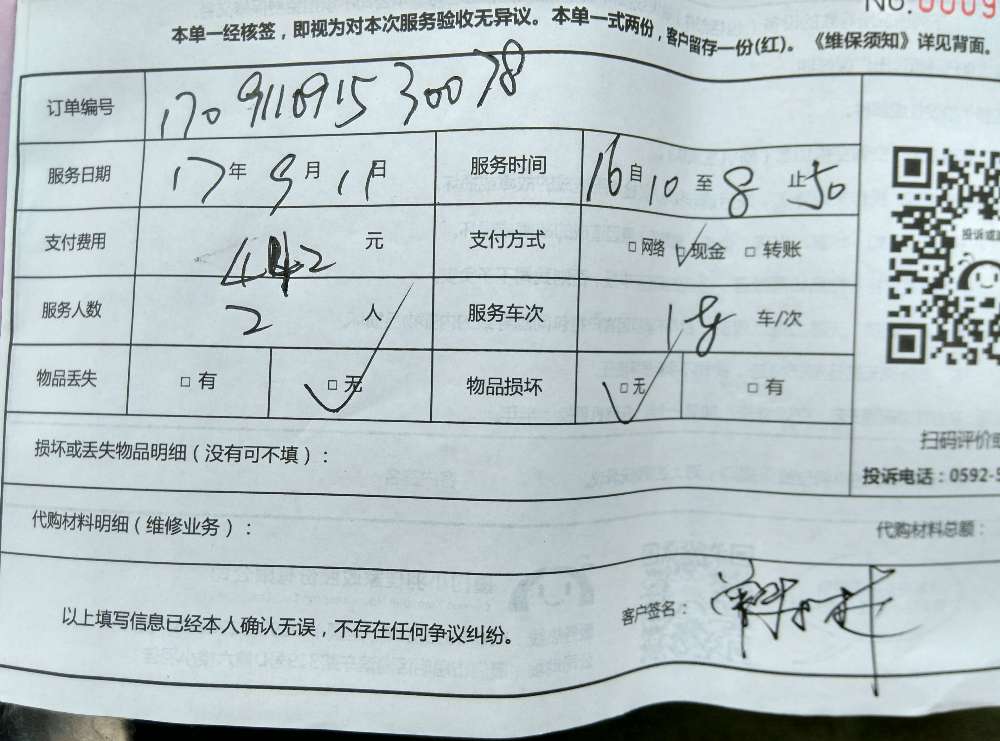 No.0009
本单一经核签，即视为对本次服务验收无异议。本单一式两份，客户留存一份(红)。《维保须知》详见背面。
订单编号 170911091530078
服务日期 17年9月11日 服务时间 16自10至8止50
支付费用 442元 支付方式 □网络 □现金 □转账
服务人数 2人 服务车次 1 车/次
物品丢失 □有 □无 物品损坏 □无 □有
损坏或丢失物品明细（没有可不填）：
扫码评价或
投诉电话：0592-5
代购材料明细（维修业务）：
代购材料总额：
以上填写信息已经本人确认无误，不存在任何争议纠纷。
客户签名：